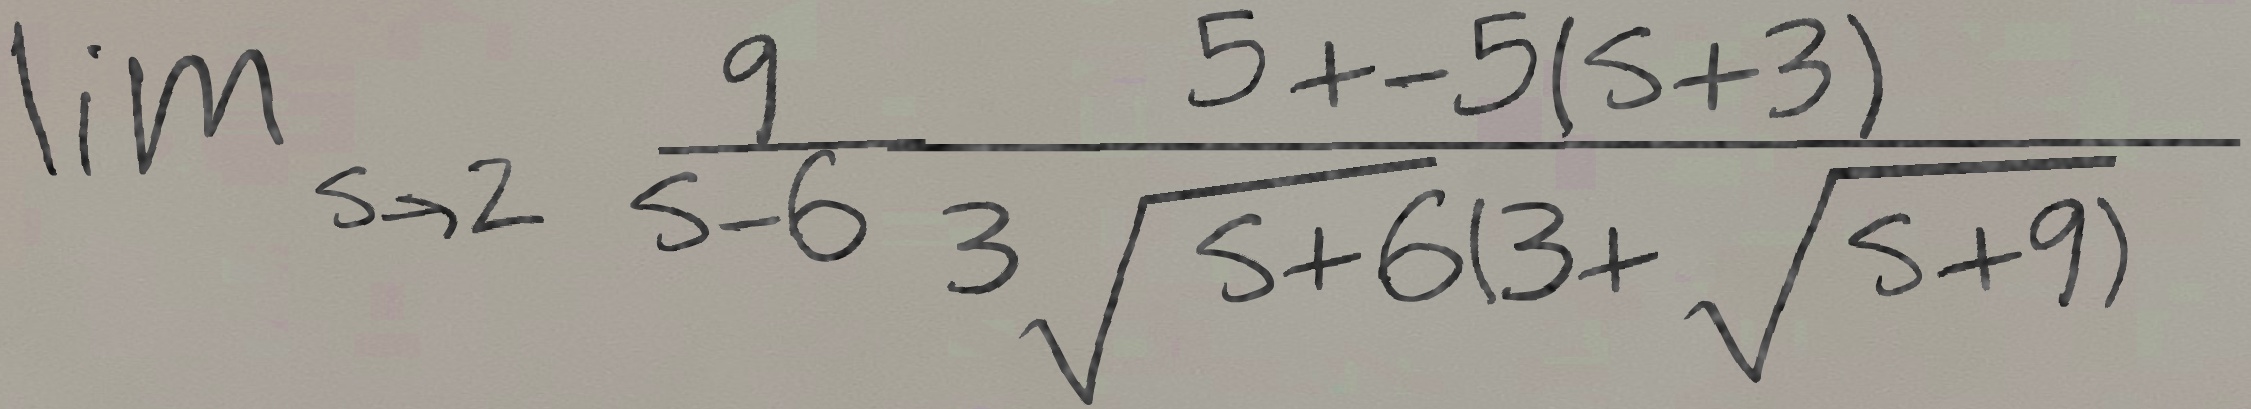 \lim_{s \to 2} \frac{9}{s-6} \frac{5+-5(s+3)}{3\sqrt{s+6}(3+\sqrt{s+9})}